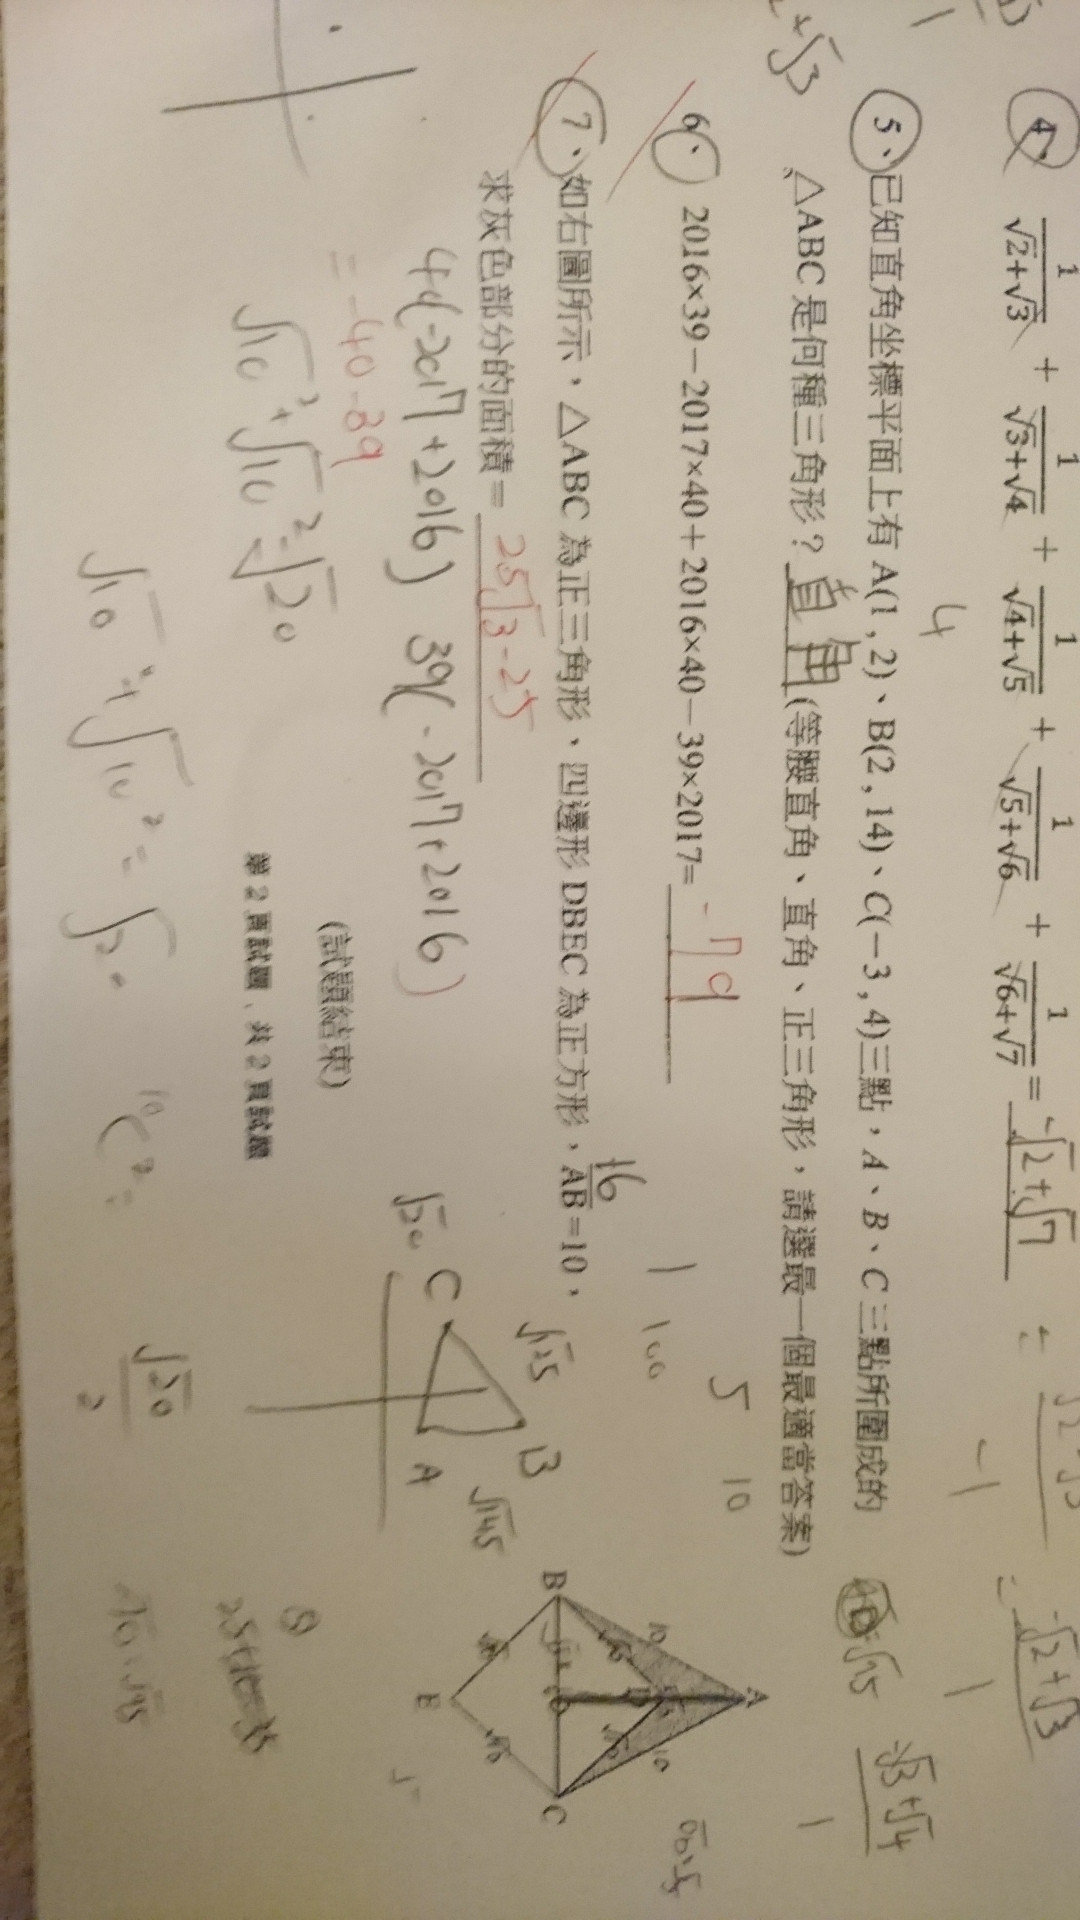 4、 1/(√2+√3) + 1/(√3+√4) + 1/(√4+√5) + 1/(√5+√6) + 1/(√6+√7) = -√2+√7
5、已知直角坐標平面上有 A(1 , 2)、B(2 , 14)、C(−3 , 4)三點，A、B、C 三點所圍成的
△ABC 是何種三角形？直角(等腰直角、直角、正三角形，請選最一個最適當答案)
6、 2016×39−2017×40＋2016×40−39×2017= -79
7、如右圖所示，△ABC 為正三角形、四邊形 DBEC 為正方形，AB=10，
求灰色部分的面積＝ 25√3-25
40(-2017+2016) 39(-2017+2016)
= -40-39
√10²+√10²=√20
√10²+√10²=√20
(試題結束)
第 2 頁試題，共 2 頁試題
4
16
1
100
5
10
√20
C
√125
B
A
√145
√20
2
-√2+√3
-√3+√4
1
A
B
C
D
E
10
10